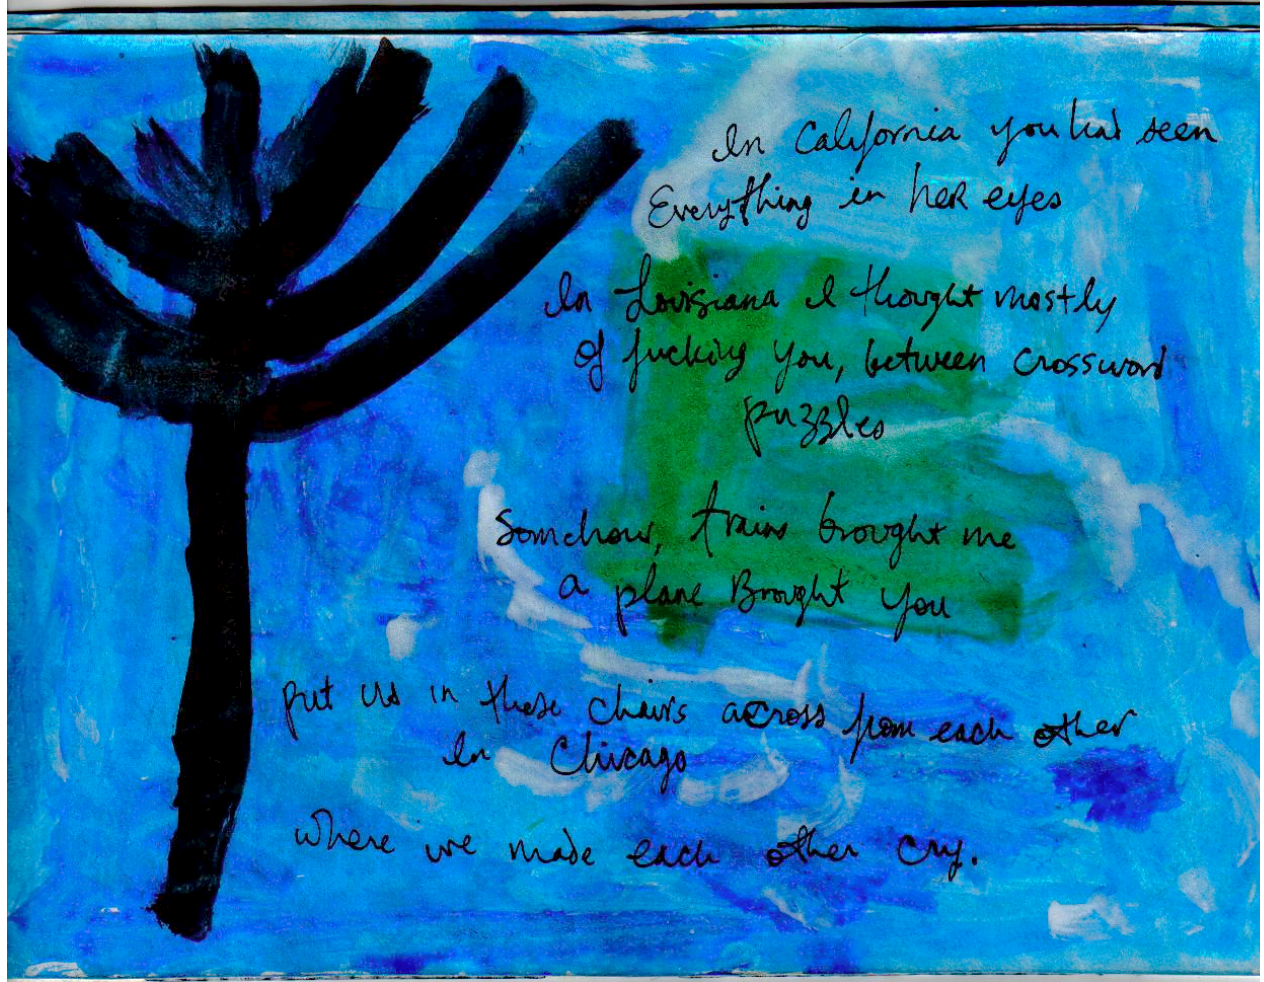 In California you had seen
Everything in her eyes
In Louisiana I thought mostly
of fucking you, between crossword
puzzles
Somehow, trains brought me
a plane Brought you
put us in these chairs across from each other
In Chicago
where we made each other cry.